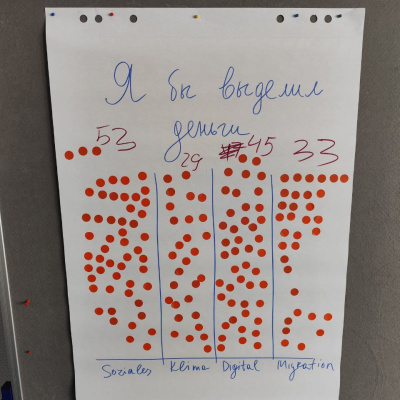 Я бы выделил
деньги
53 29 45 33
Soziales Klima Digital Migration